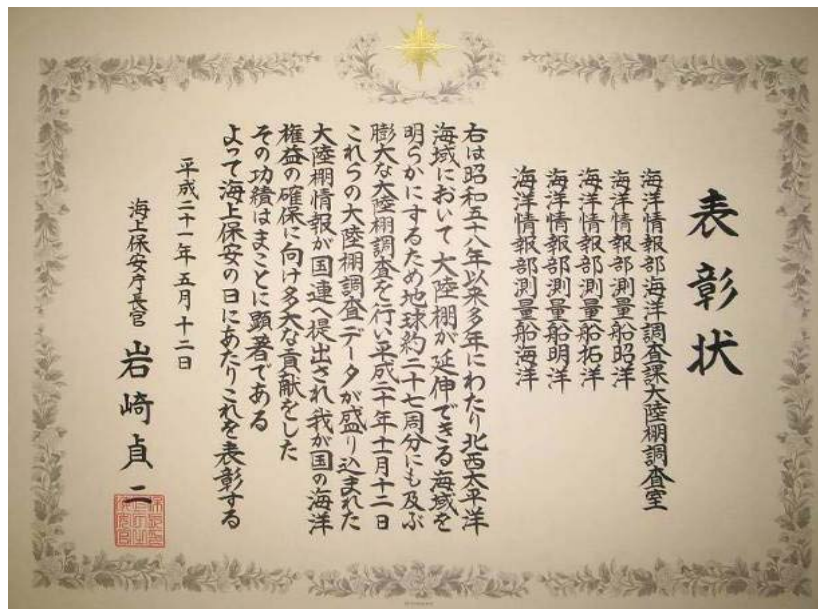 表彰状
海洋情報部海洋調査課大陸棚調査室
海洋情報部測量船昭洋
海洋情報部測量船拓洋
海洋情報部測量船明洋
海洋情報部測量船海洋
右は昭和五十八年以来多年にわたり北西太平洋
海域において大陸棚が延伸できる海域を
明らかにするため地球約二十七周分にも及ぶ
膨大な大陸棚調査を行い平成二十年十一月十二日
これらの大陸棚調査データが盛り込まれた
大陸棚情報が国連へ提出され我が国の海洋
権益の確保に向け多大な貢献をした
その功績はまことに顕著である
よって海上保安の日にあたりこれを表彰する
平成二十一年五月十二日
海上保安庁長官 岩崎貞二